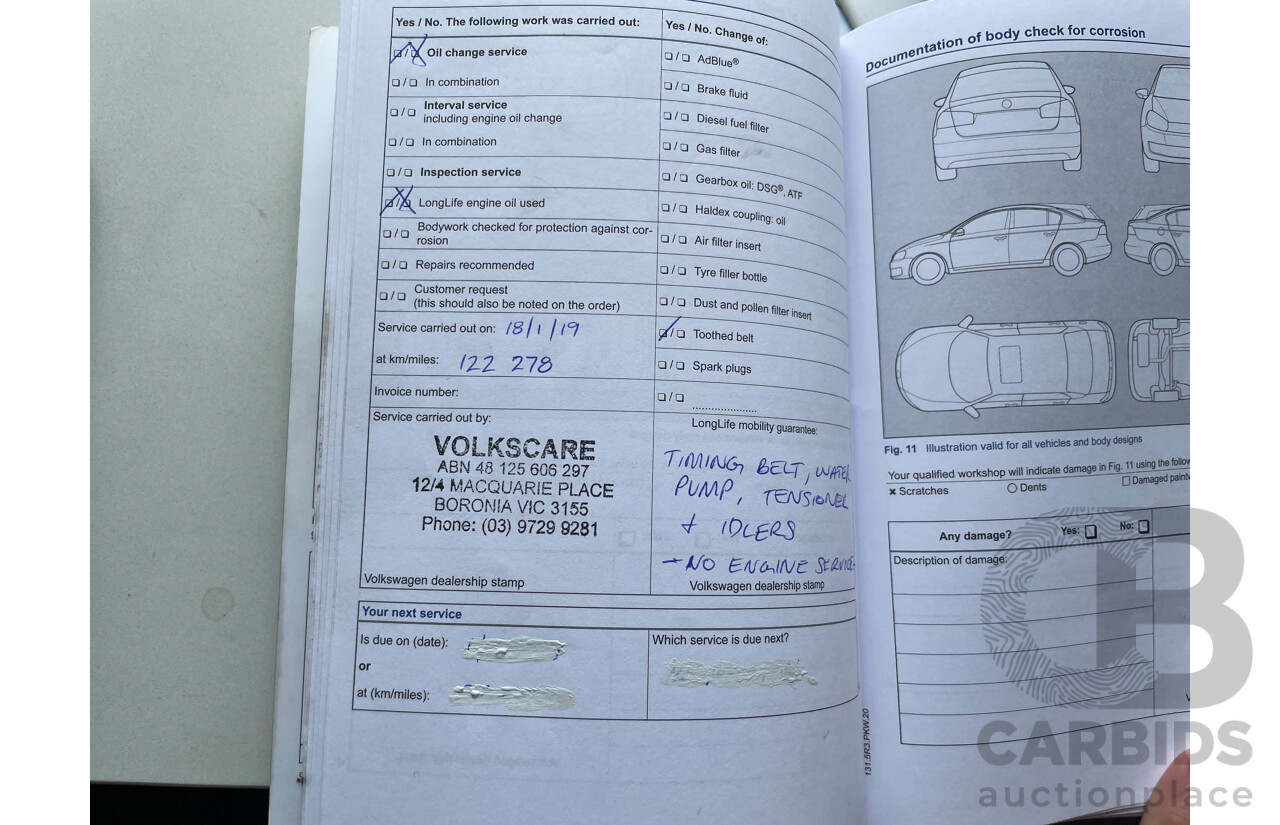 Yes / No. The following work was carried out:
❏ / ❏ Oil change service
❏ / ❏ In combination
❏ / ❏ Interval service
including engine oil change
❏ / ❏ In combination
❏ / ❏ Inspection service
❏ / ❏ LongLife engine oil used
❏ / ❏ Bodywork checked for protection against cor-
rosion
❏ / ❏ Repairs recommended
❏ / ❏ Customer request
(this should also be noted on the order)
Service carried out on: 18/1/19
at km/miles: 122 278
Invoice number:
Service carried out by:
VOLKSCARE
ABN 48 125 606 297
12/4 MACQUARIE PLACE
BORONIA VIC 3155
Phone: (03) 9729 9281
Volkswagen dealership stamp
Yes / No. Change of:
❏ / ❏ AdBlue®
❏ / ❏ Brake fluid
❏ / ❏ Diesel fuel filter
❏ / ❏ Gas filter
❏ / ❏ Gearbox oil: DSG®, ATF
❏ / ❏ Haldex coupling: oil
❏ / ❏ Air filter insert
❏ / ❏ Tyre filler bottle
❏ / ❏ Dust and pollen filter insert
❏ / ❏ Toothed belt
❏ / ❏ Spark plugs
❏ / ❏ .....................
LongLife mobility guarantee:
TIMING BELT, WATER
PUMP, TENSIONER
+ IDLERS
- NO ENGINE SERVICE
Volkswagen dealership stamp
Your next service
Is due on (date):
or
at (km/miles):
Which service is due next?
Documentation of body check for corrosion
Fig. 11 Illustration valid for all vehicles and body designs
Your qualified workshop will indicate damage in Fig. 11 using the
× Scratches ○ Dents ❏ Damaged
Any damage? Yes: ❏ No: ❏
Description of damage:
131.5R3.PKW.20
CB
CARBIDS
auctionplace